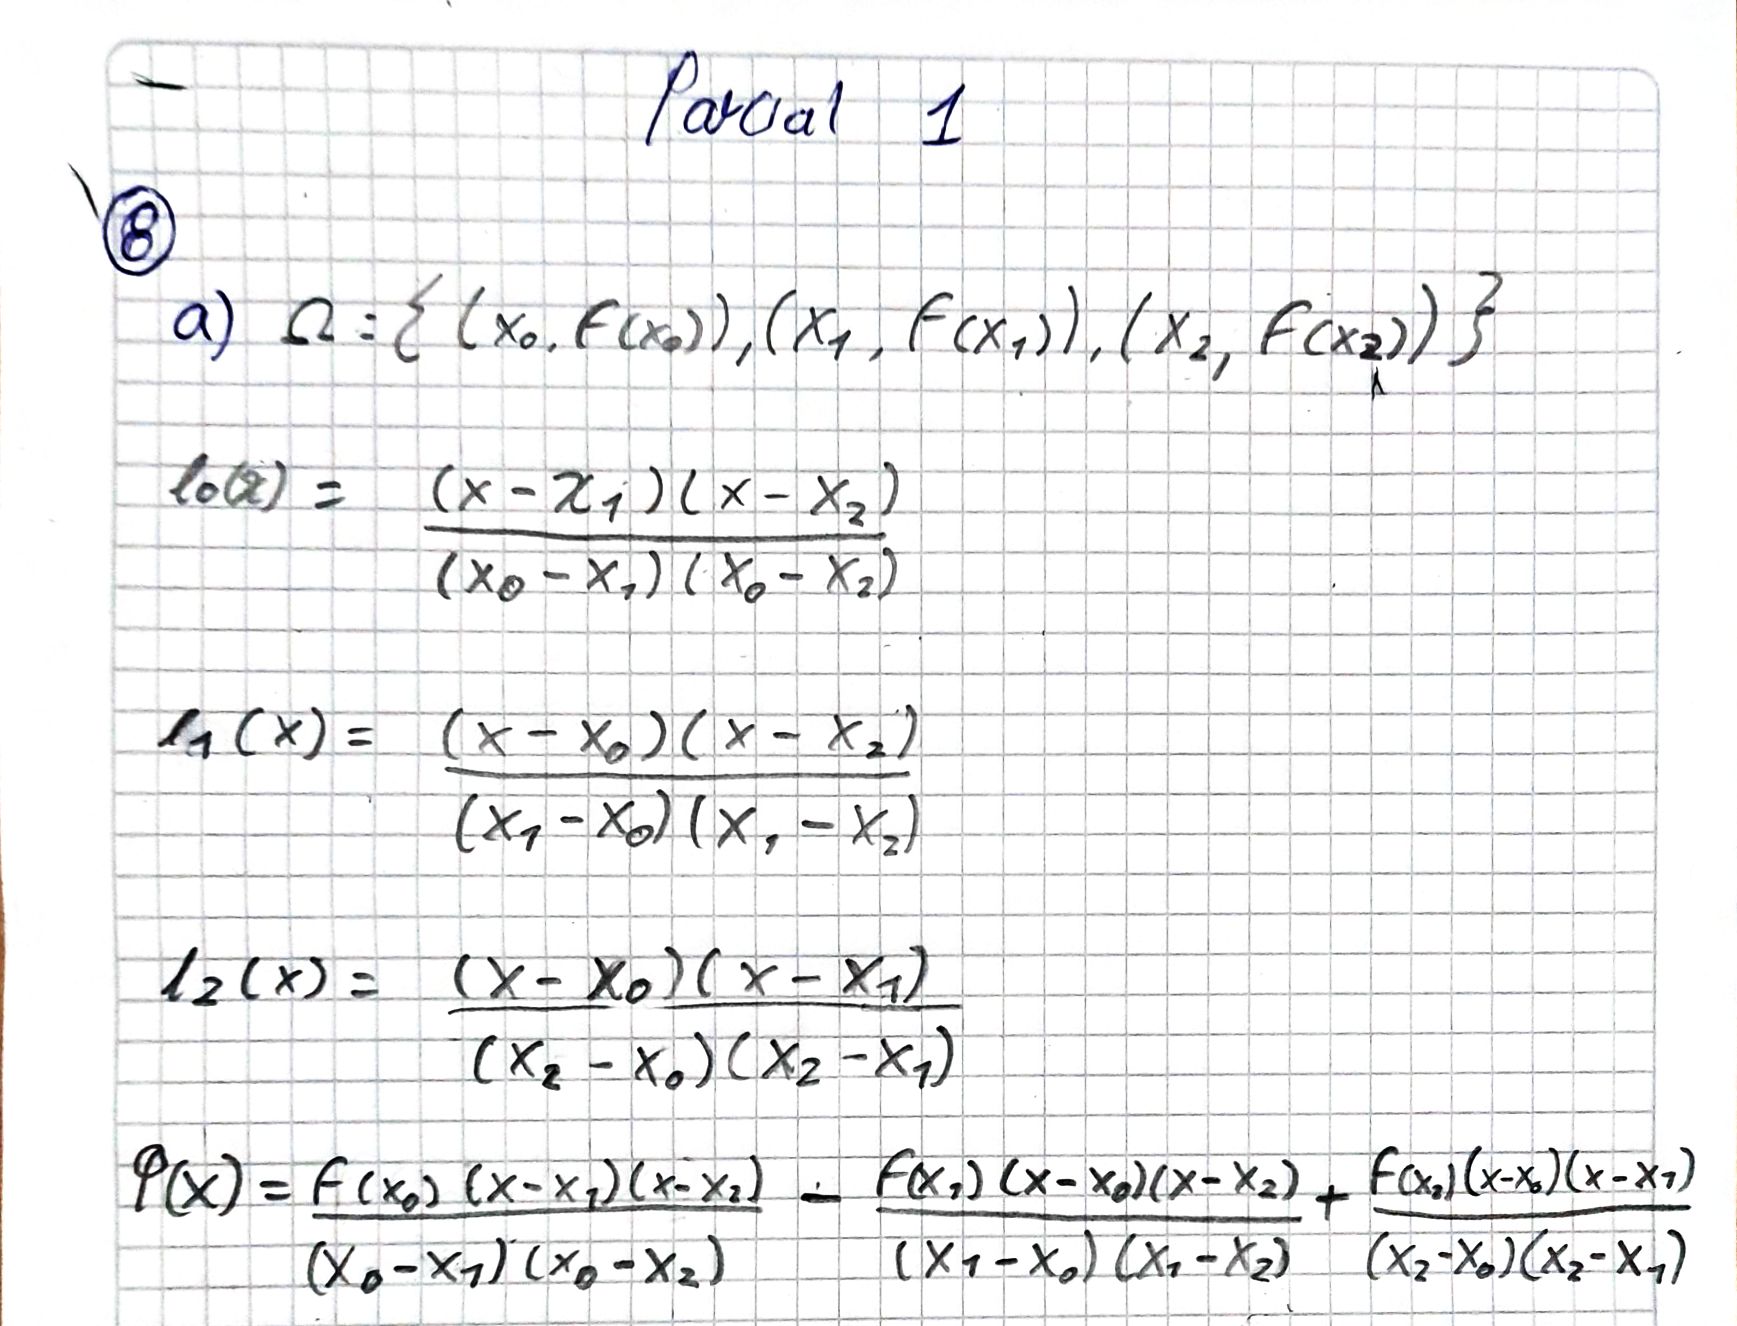 Parcial 1
8
a) Ω = { (x₀, f(x₀)), (x₁, f(x₁)), (x₂, f(x₂)) }
l₀(x) = (x - x₁)(x - x₂)
(x₀ - x₁)(x₀ - x₂)
l₁(x) = (x - x₀)(x - x₂)
(x₁ - x₀)(x₁ - x₂)
l₂(x) = (x - x₀)(x - x₁)
(x₂ - x₀)(x₂ - x₁)
P(x) = f(x₀)(x - x₁)(x - x₂) - f(x₁)(x - x₀)(x - x₂) + f(x₂)(x - x₀)(x - x₁)
(x₀ - x₁)(x₀ - x₂) (x₁ - x₀)(x₁ - x₂) (x₂ - x₀)(x₂ - x₁)